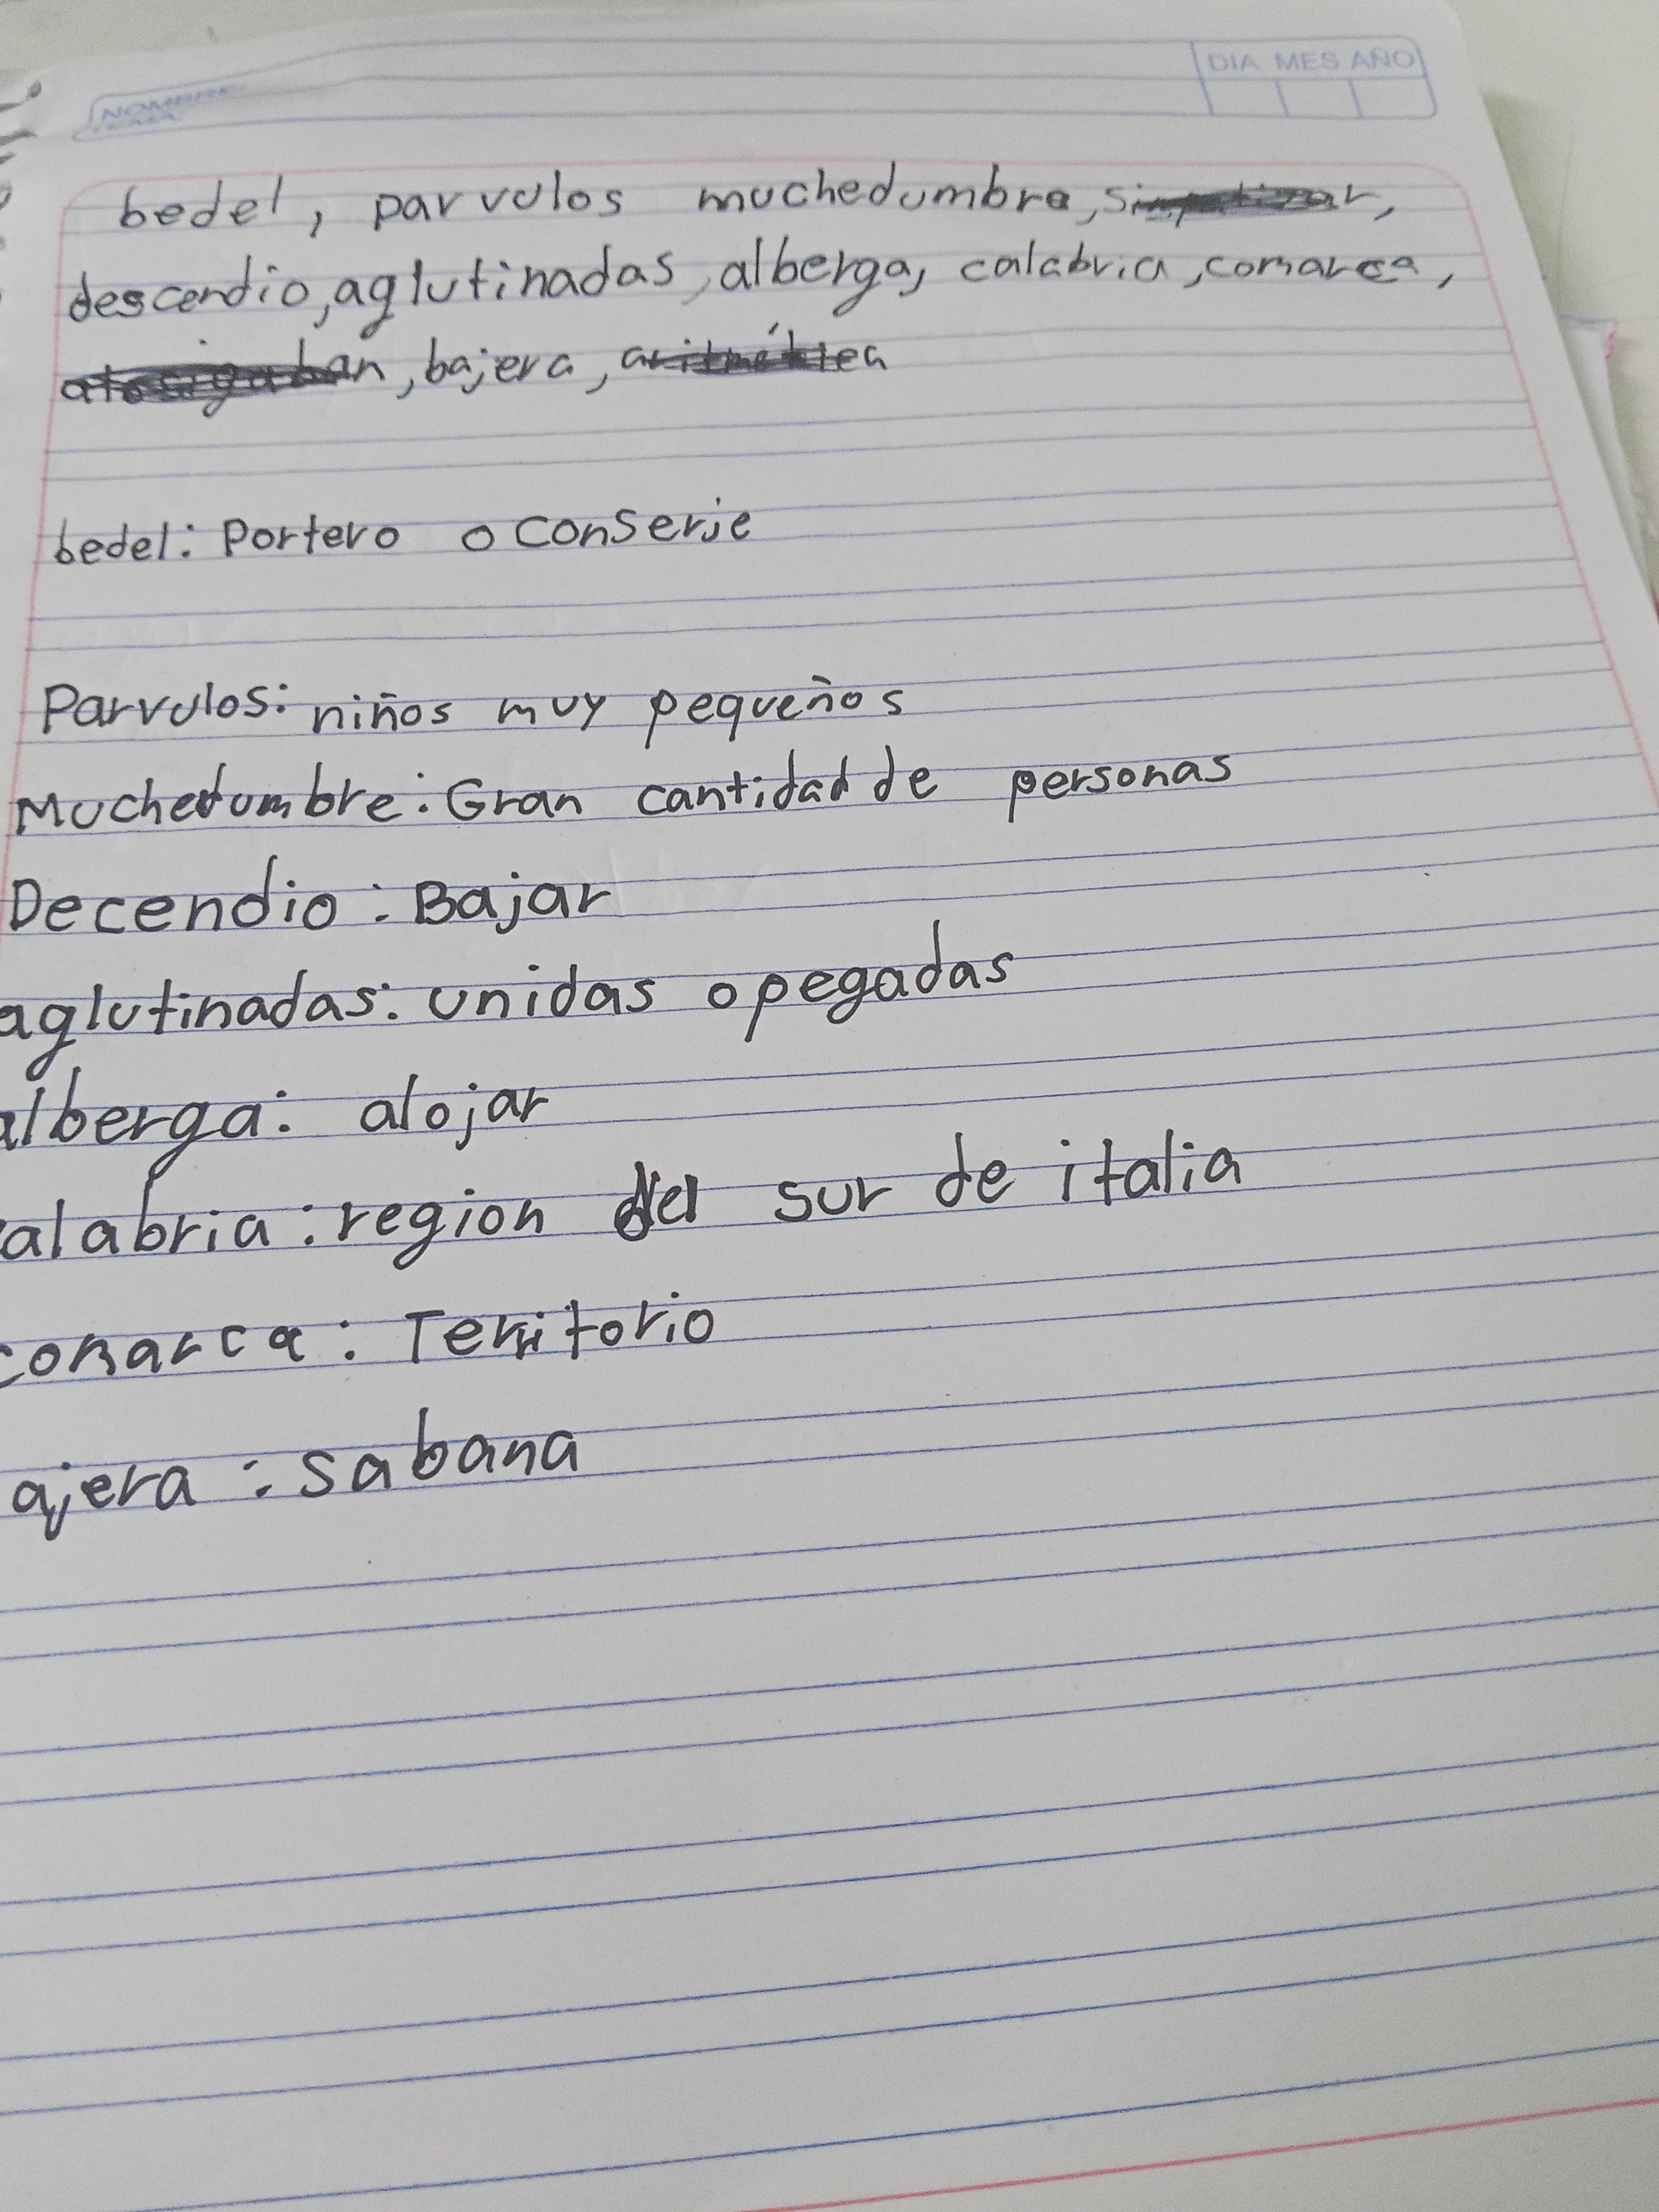 NOMBRE
TEMA:
DIA MES AÑO
bedel, parvulos muchedumbre, simpatizar,
descendio, aglutinadas, alberga, calabria, comarca,
atosigaban, bajera, aritmética
bedel: Portero o conserje
Parvulos: niños muy pequeños
Muchedumbre: Gran cantidad de personas
Decendio: Bajar
aglutinadas: unidas o pegadas
alberga: alojar
calabria: region del sur de italia
comarca: Territorio
ajera: sabana